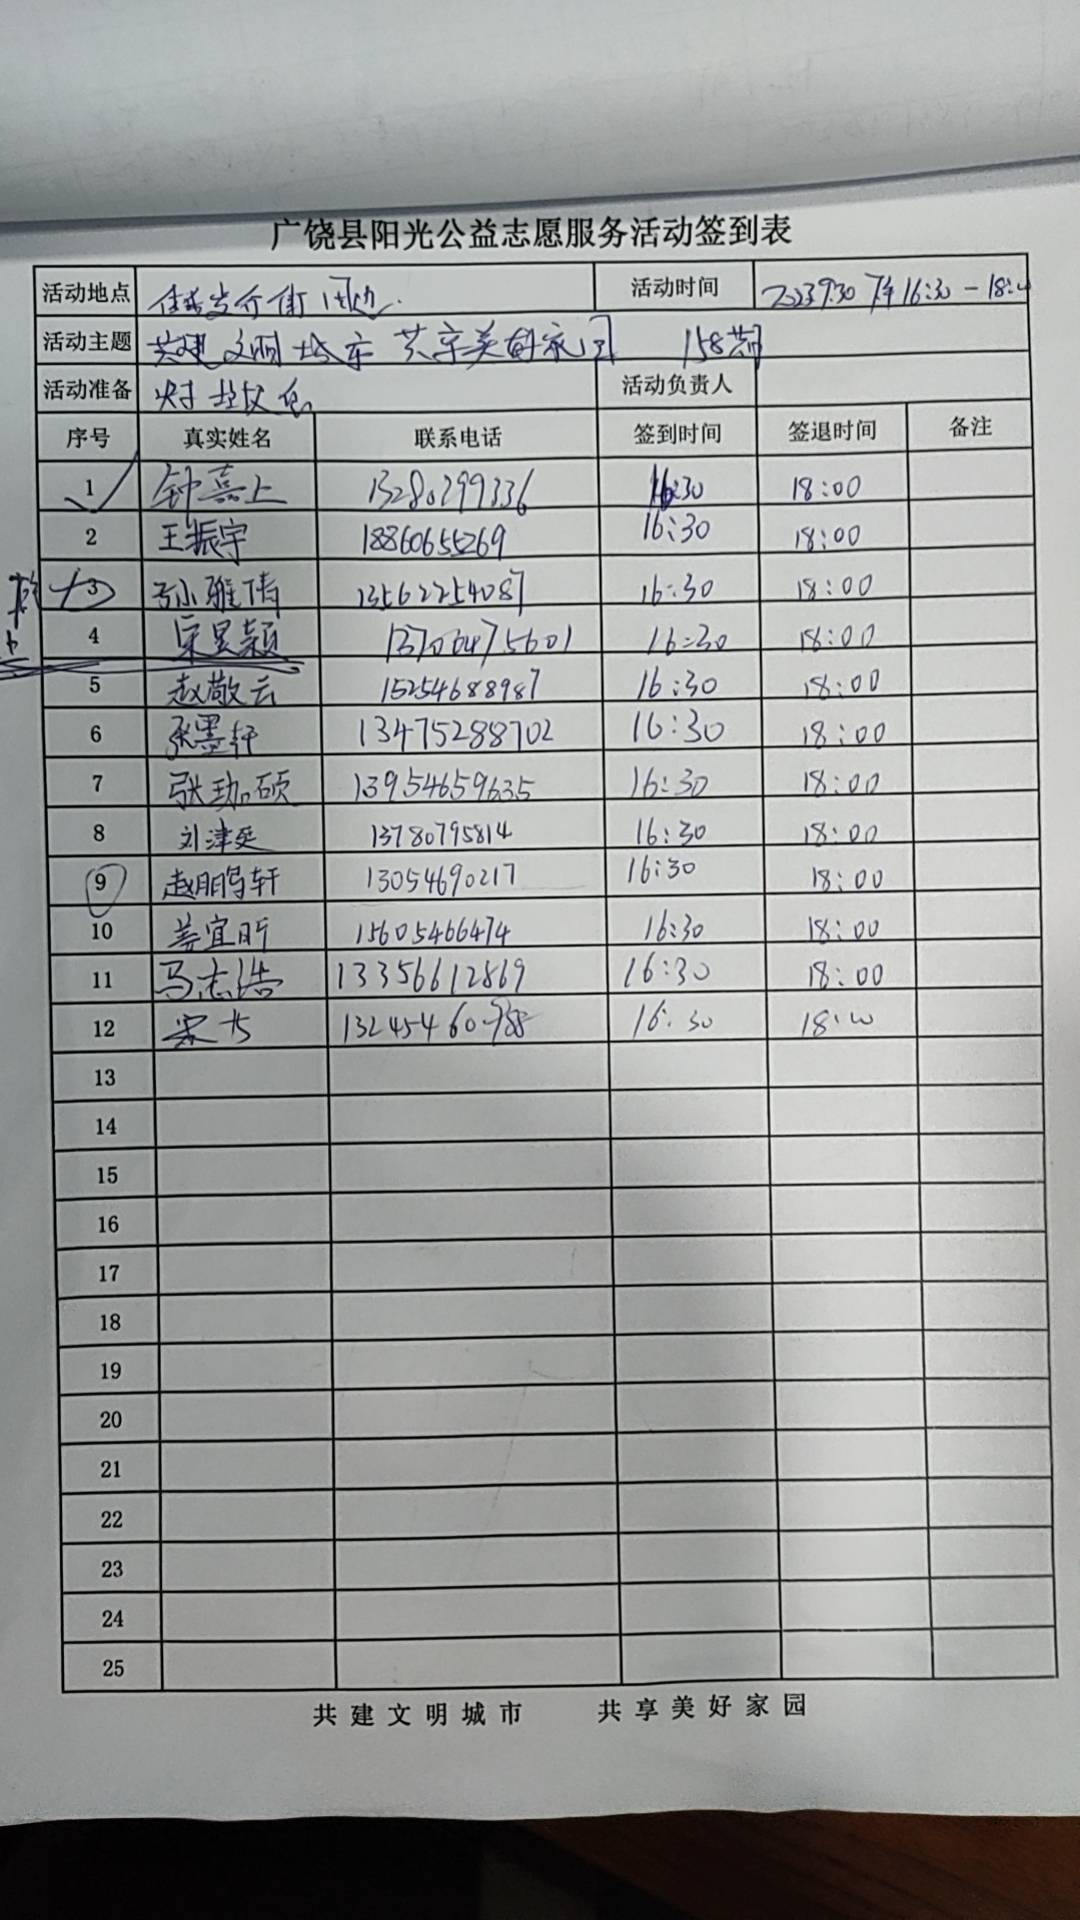 广饶县阳光公益志愿服务活动签到表
活动地点 步行街周边. 活动时间 2023 9.30 下午 16:30 - 18:00
活动主题 共建文明城市 共享美好家园 158期
活动准备 夹子 垃圾包 活动负责人
序号 真实姓名 联系电话 签到时间 签退时间 备注
1 钟嘉上 15280299336 16:30 18:00
2 王振宇 18860655269 16:30 18:00
3 孙雅倩 13562254087 16:30 18:00
4 宋昱颖 13706475601 16:30 18:00
5 赵敬云 15254688987 16:30 18:00
6 张墨轩 13475288702 16:30 18:00
7 张珈硕 13954659635 16:30 18:00
8 刘津廷 13780795814 16:30 18:00
9 赵鹏轩 13054690217 16:30 18:00
10 姜宜昕 15605466474 16:30 18:00
11 马志浩 13356612869 16:30 18:00
12 宋 16:30 18:00
13
14
15
16
17
18
19
20
21
22
23
24
25
共建文明城市 共享美好家园